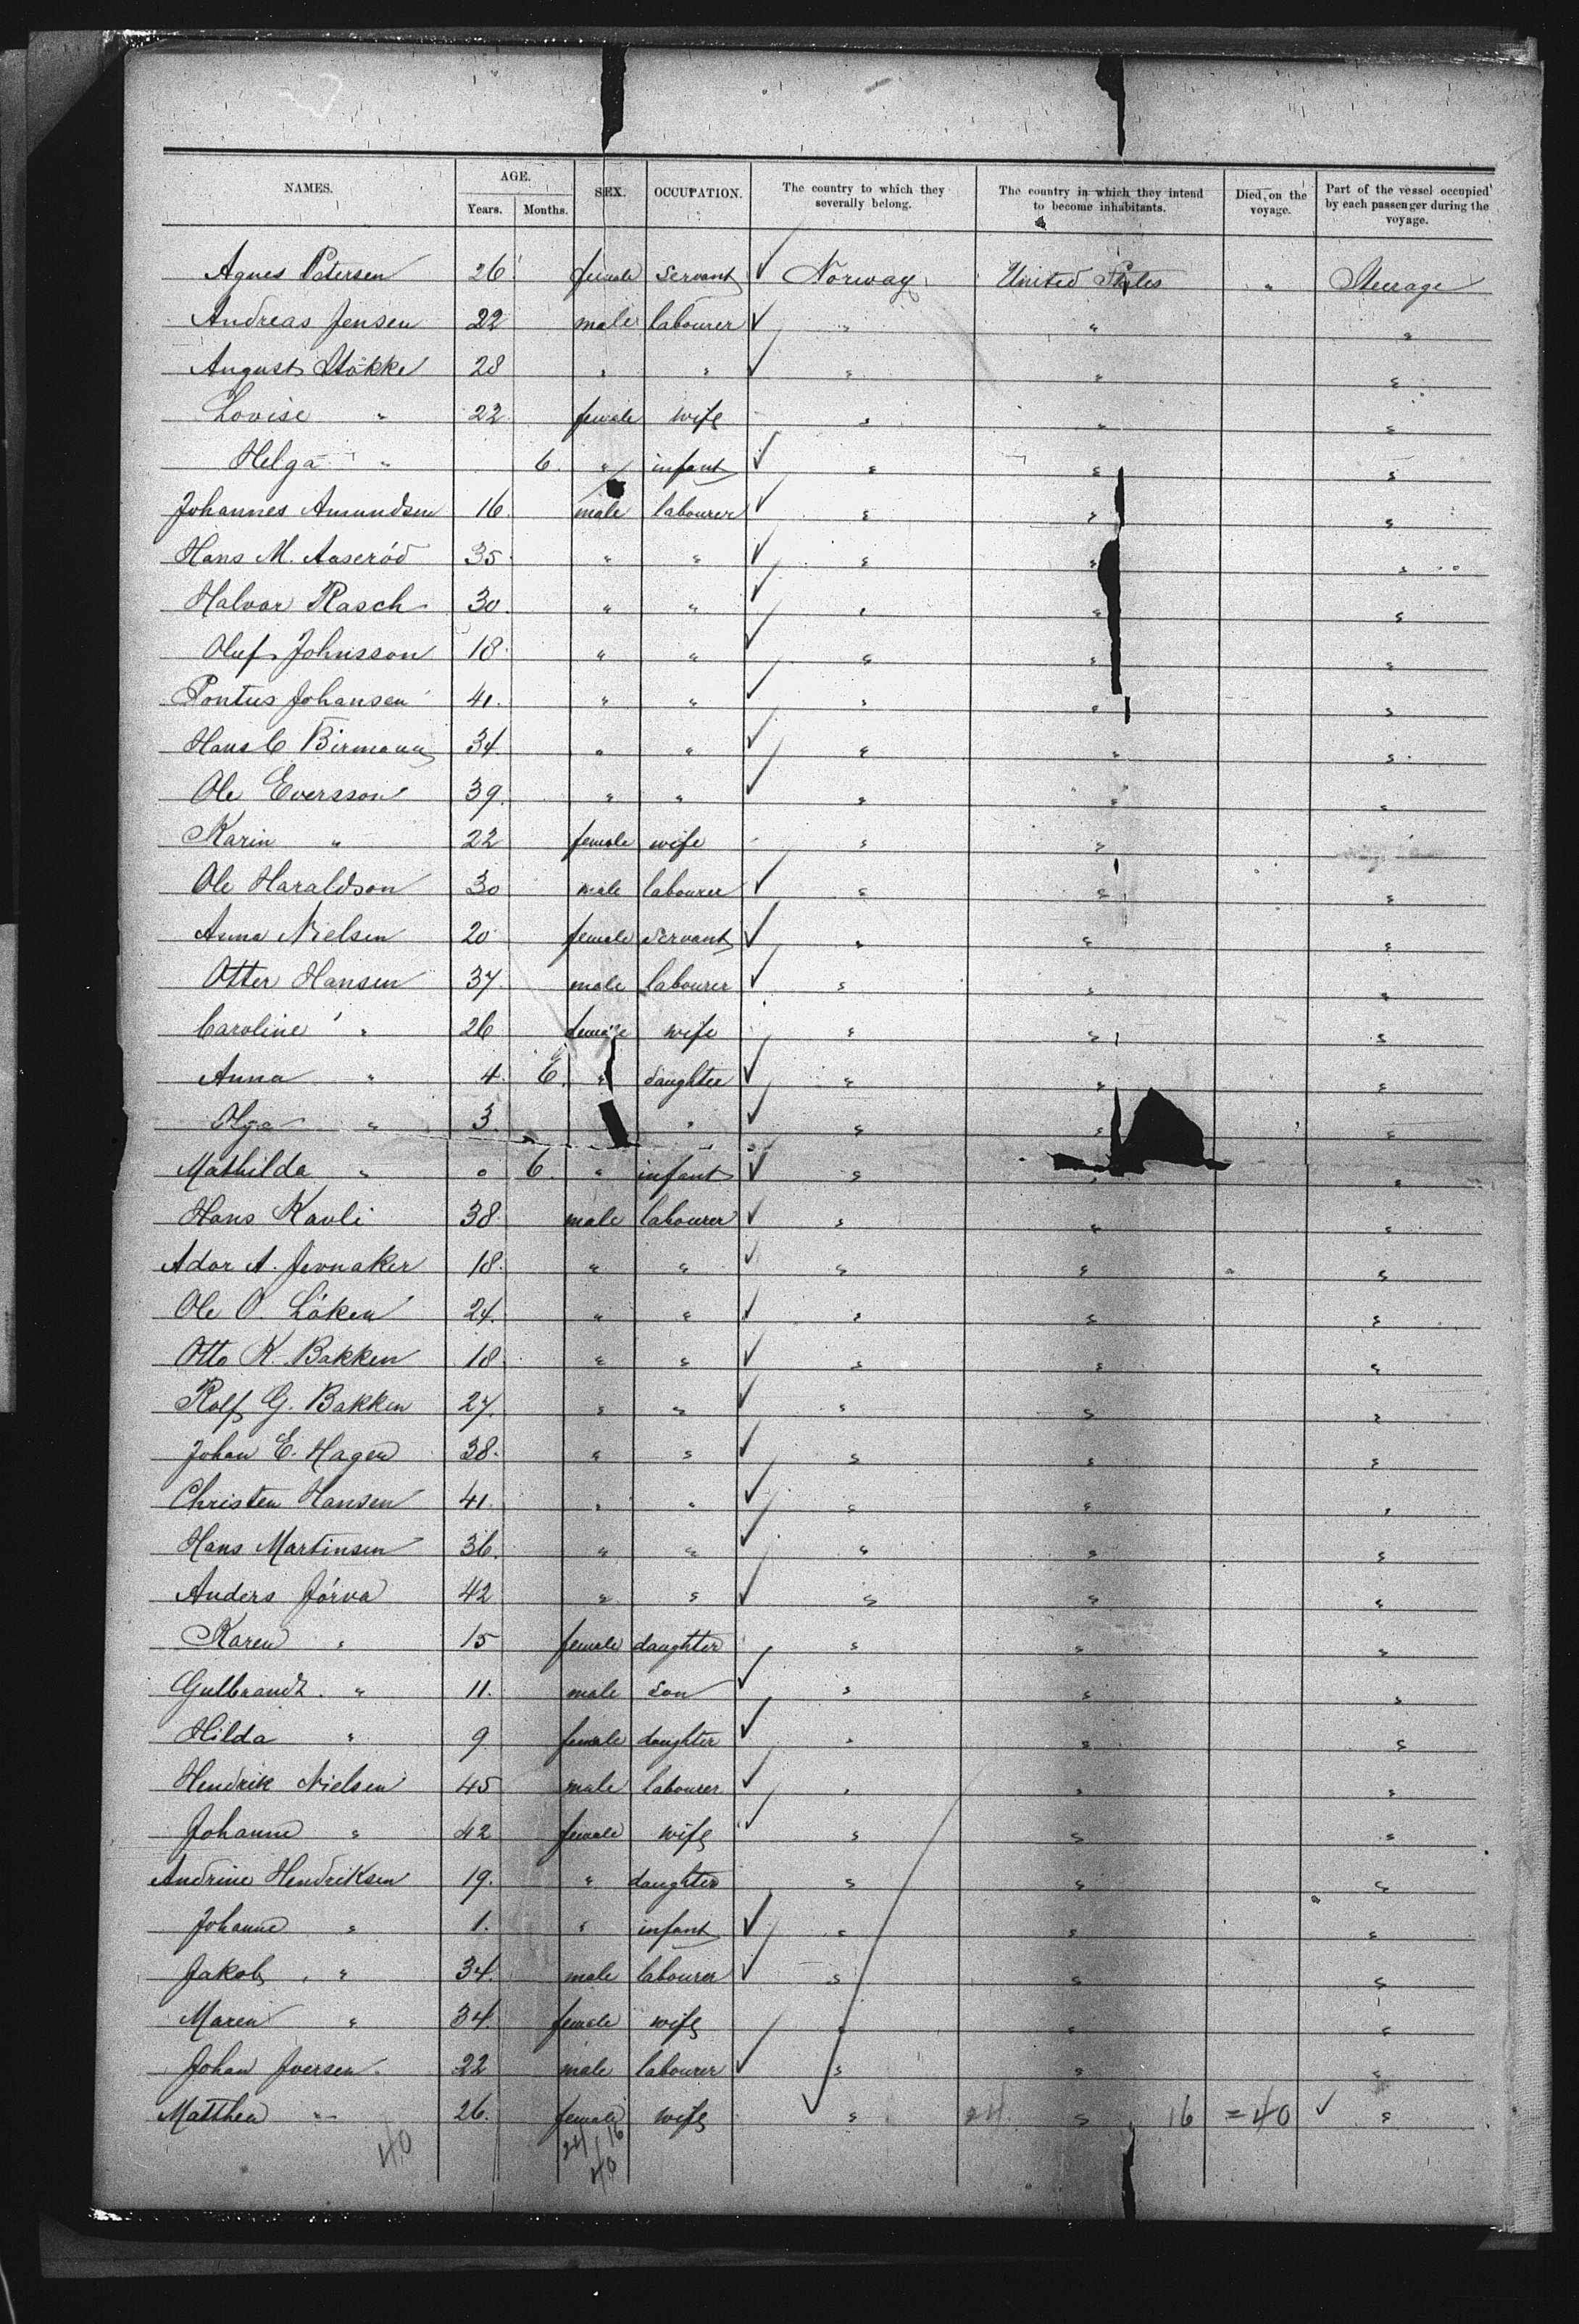 NAMES. AGE. SEX. OCCUPATION. The country to which they severally belong. The country in which they intend to become inhabitants. Died on the voyage. Part of the vessel occupied by each passenger during the voyage.
Years. Months.
Agnes Petersen 26 female Servant ✓ Norway United States " Steerage
Andreas Jensen 22 male labourer ✓ " " "
August Stökke 28 " " ✓ " " "
Lovise " 22 female wife " " "
Helga " 6 " infant ✓ " " "
Johannes Amundsen 16 male labourer ✓ " " "
Hans M. Aaseröd 35 " " ✓ " " "
Halvor Rasch 30 " " ✓ " " "
Oluf Johnsson 18 " " ✓ " " "
Pontus Johansen 41 " " ✓ " " "
Hans C Birmann 34 " " ✓ " " "
Ole Eversson 39 " " ✓ " " "
Karin " 22 female wife " "
Ole Haraldson 30 male labourer ✓ " " "
Anna Nielsen 20 female Servant ✓ " " "
Otter Hansen 37 male labourer ✓ " " "
Caroline " 26 female wife " " "
Anna " 4 6 " daughter ✓ " " "
Olga " 3 " ✓ " " "
Mathilda " 0 6 " infant ✓ " " "
Hans Kavli 38 male labourer ✓ " " "
Ador A. Jevnaker 18 " " ✓ " " "
Ole O. Löken 24 " " ✓ " " "
Otto K. Bakken 18 " " ✓ " " "
Rolf G. Bakken 27 " " ✓ " " "
Johan E. Hagen 38 " " ✓ " " "
Christen Hansen 41 " " ✓ " " "
Hans Martinsen 36 " " ✓ " " "
Anders Jörva 42 " " ✓ " " "
Karen " 15 female daughter " " "
Gulbrandt " 11 male son ✓ " " "
Hilda " 9 female daughter ✓ " " "
Hendrik Nielsen 45 male labourer ✓ " " "
Johanne " 42 female wife ✓ " " "
Andrine Hendriksen 19 " daughter " " "
Johanne " 1 " infant ✓ " " "
Jakob " 34 male labourer ✓ " " "
Maren " 34 female wife " " "
Johan Iversen 22 male labourer ✓ " " "
Matthea " 26 female wife ✓ " 24 " 16 = 40 ✓ "
40 24/16
40